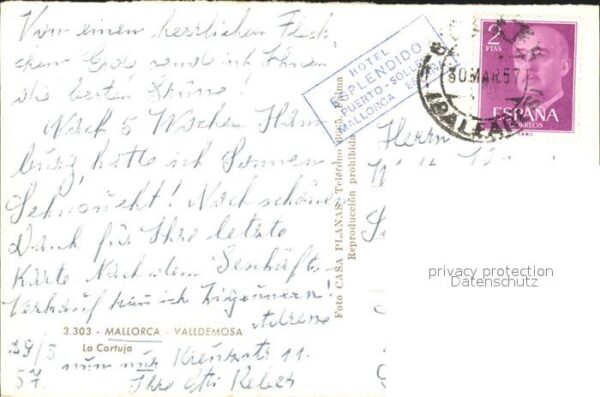 Von einem herrlichen Fleck-
chen Erde sende ich Ihnen
die besten Grüsse!
Nach 5 Wochen Ham-
burg, hatte ich Sonnen-
Sehnsucht! Noch schönen
Dank für Ihre letzte
Karte. Nach dem Geschäfts-
Verkauf kann ich Zigeunern!
Adresse
3.303 - MALLORCA - VALLDEMOSA
La Cartuja
29/3
57.
nun nur Kreuzstr. 11.
Ihre
HOTEL
ESPLENDIDO
PUERTO-SOLLER
MALLORCA
Foto CASA PLANAS. Teléfono Palma
Reproducción prohibida
30 MAR 57
(BALEARES)
2
PTAS
ESPAÑA
CORREOS
Herrn
privacy protection
Datenschutz